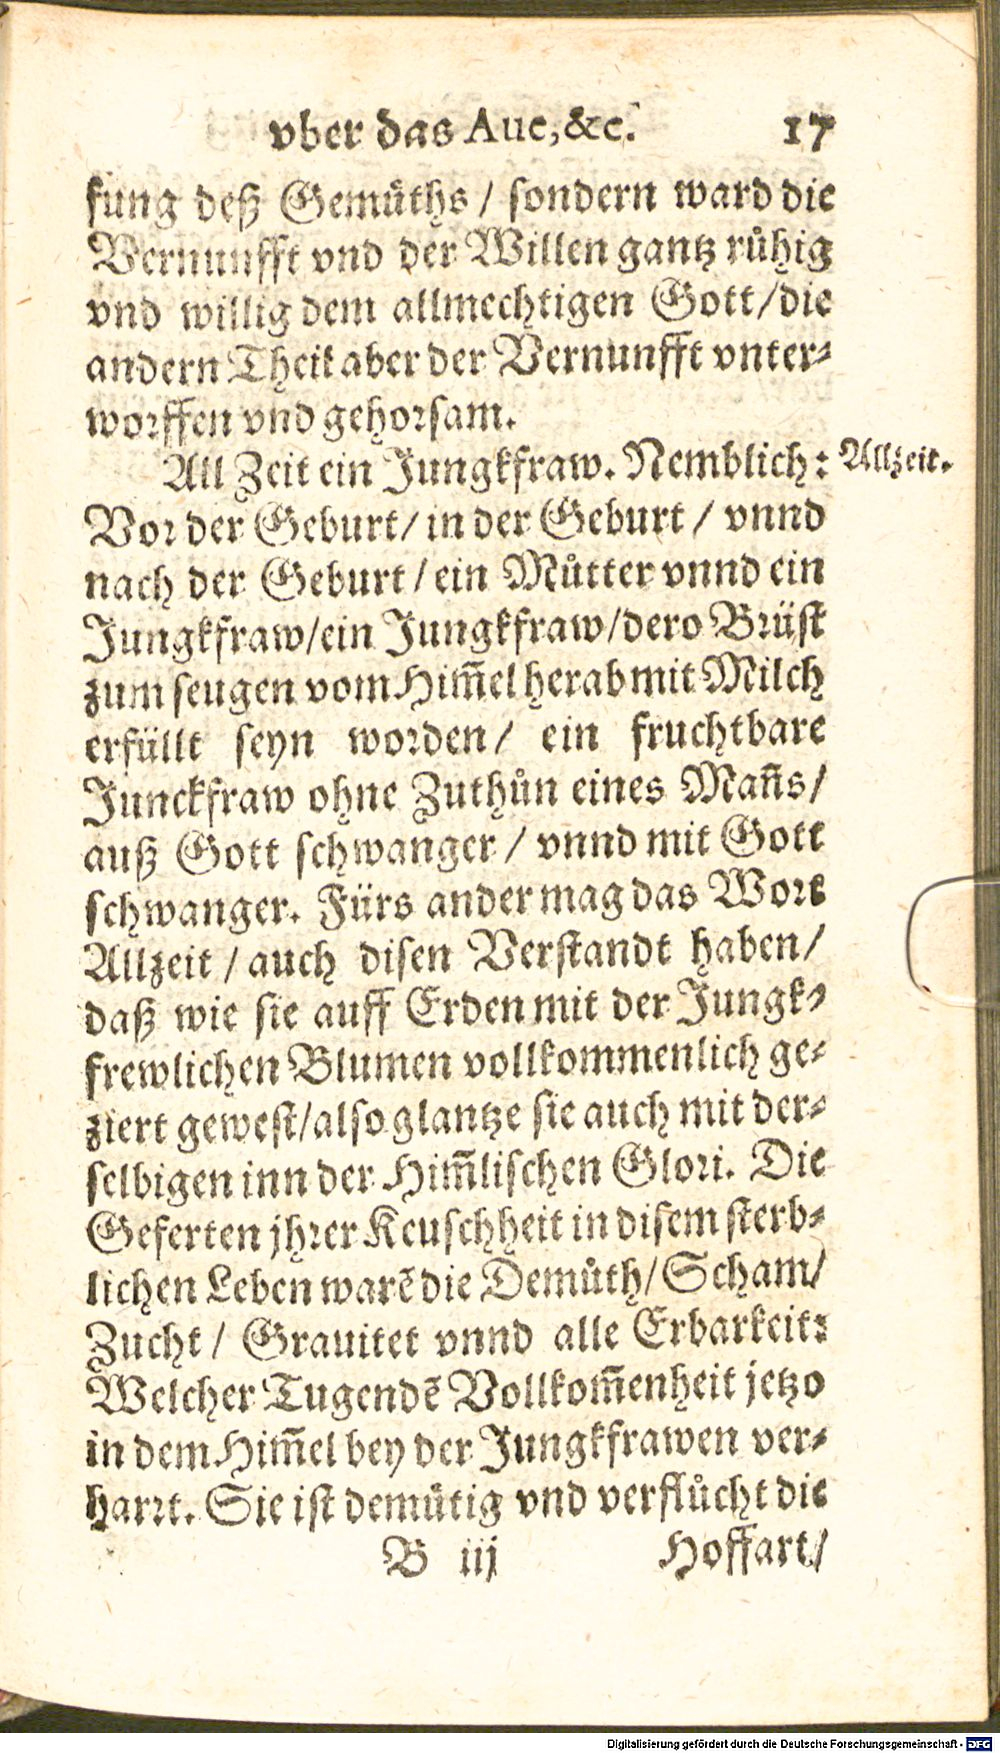 vber das Aue,&c. 17
fung deß Gemüths / sondern ward die
Vernunfft vnd der Willen gantz růhig
vnd willig dem allmechtigen Gott/die
andern Theil aber der Vernunfft vnter-
worffen vnd gehorsam.
All Zeit ein Jungkfraw. Nemblich: Allzeit.
Vor der Geburt/ in der Geburt / vnnd
nach der Geburt / ein Můtter vnnd ein
Jungkfraw/ein Jungkfraw/dero Brüst
zum seugen vom Him̃el herab mit Milch
erfüllt seyn worden/ ein fruchtbare
Junckfraw ohne Zuthůn eines Mañs/
auß Gott schwanger / vnnd mit Gott
schwanger. Fürs ander mag das Wort
Allzeit / auch disen Verstandt haben/
daß wie sie auff Erden mit der Jungk-
frewlichen Blumen vollkommenlich ge-
ziert gewest/also glantze sie auch mit der-
selbigen inn der Him̃lischen Glori. Die
Geferten jhrer Keuschheit in disem sterb-
lichen Leben warē die Demůth/ Scham/
Zucht / Grauitet vnnd alle Erbarkeit:
Welcher Tugendē Vollkom̃enheit jetzo
in dem Him̃el bey der Jungkfrawen ver-
harrt. Sie ist demůtig vnd verflůcht die
B iij Hoffart/
Digitalisierung gefördert durch die Deutsche Forschungsgemeinschaft - DFG